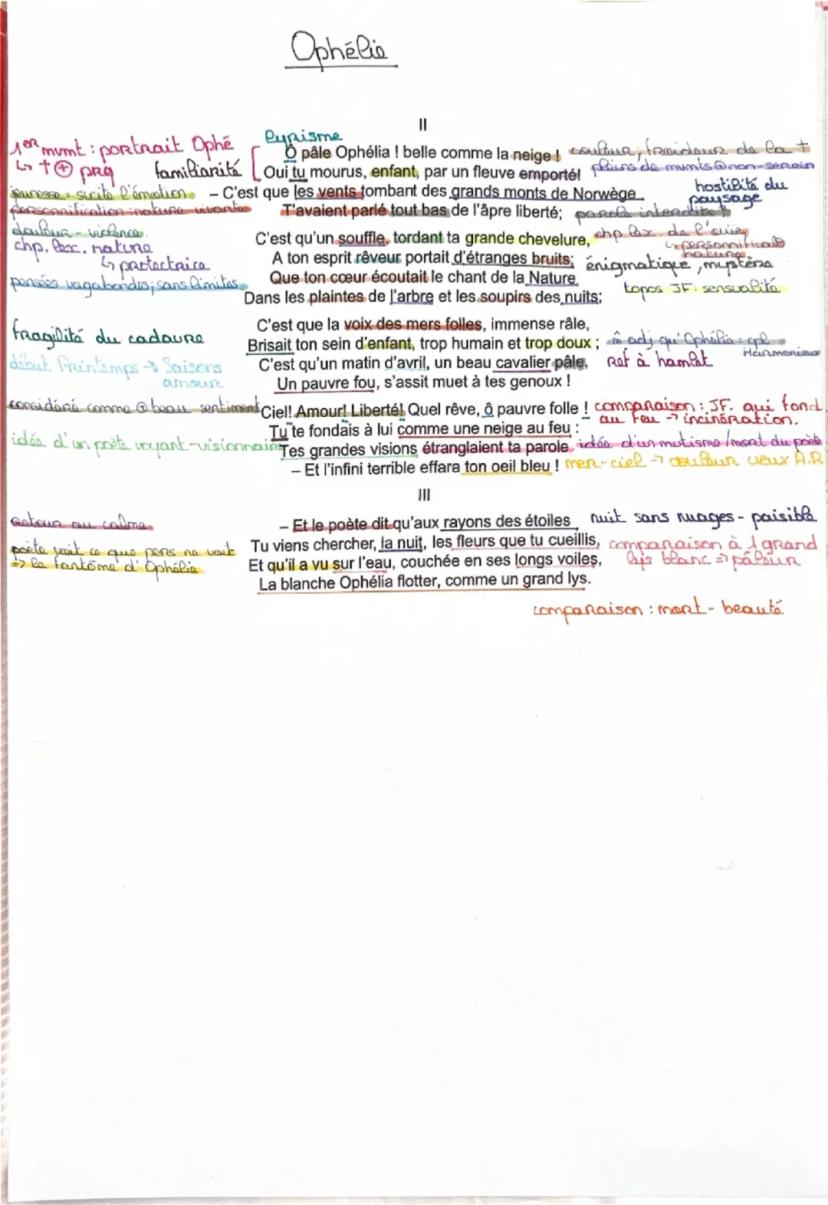 Ophélie
II
1er mvmt : portrait Ophé
Lyrisme
Ô pâle Ophélia ! belle comme la neige ! couleur, froideur de la †
↳ † ⊕ prq familiarité Oui tu mourus, enfant, par un fleuve emporté! pleins de mvmts
jeunesse = sucite l'émotion – C'est que les vents tombant des grands monts de Norwège hostilité du paysage
personnification nature vivante T'avaient parlé tout bas de l'âpre liberté; parole interdite
douleur - violence
chp. lex. nature C'est qu'un souffle, tordant ta grande chevelure, chp lex de l'ouïe
↳ protectrice A ton esprit rêveur portait d'étranges bruits; énigmatique, mystère
↳ personnificat° nature
pensées vagabondes; sans limites Que ton cœur écoutait le chant de la Nature
Dans les plaintes de l'arbre et les soupirs des nuits; topos JF : sensualité
C'est que la voix des mers folles, immense râle,
fragilité du cadavre Brisait ton sein d'enfant, trop humain et trop doux ; m̂ adj qu'Ophélie : cpl Harmonieux
début Printemps → Saisons amour C'est qu'un matin d'avril, un beau cavalier pâle, Ref à hamlet
Un pauvre fou, s'assit muet à tes genoux !
considéré comme beau sentiment Ciel! Amour! Liberté! Quel rêve, ô pauvre folle ! comparaison : JF. qui fond
Tu te fondais à lui comme une neige au feu : au feu → incinération.
idée d'un poète voyant-visionnaire Tes grandes visions étranglaient ta parole idée d'un mutisme/mort du poète
– Et l'infini terrible effara ton oeil bleu ! mer-ciel → couleur yeux A.R
III
Retour au calme – Et le poète dit qu'aux rayons des étoiles nuit sans nuages - paisible
poète voit ce que pers ne voit Tu viens chercher, la nuit, les fleurs que tu cueillis, comparaison à 1 grand
⇒ le fantôme d'Ophélie Et qu'il a vu sur l'eau, couchée en ses longs voiles, lys blanc ⇒ pâleur
La blanche Ophélia flotter, comme un grand lys.
comparaison : mort - beauté